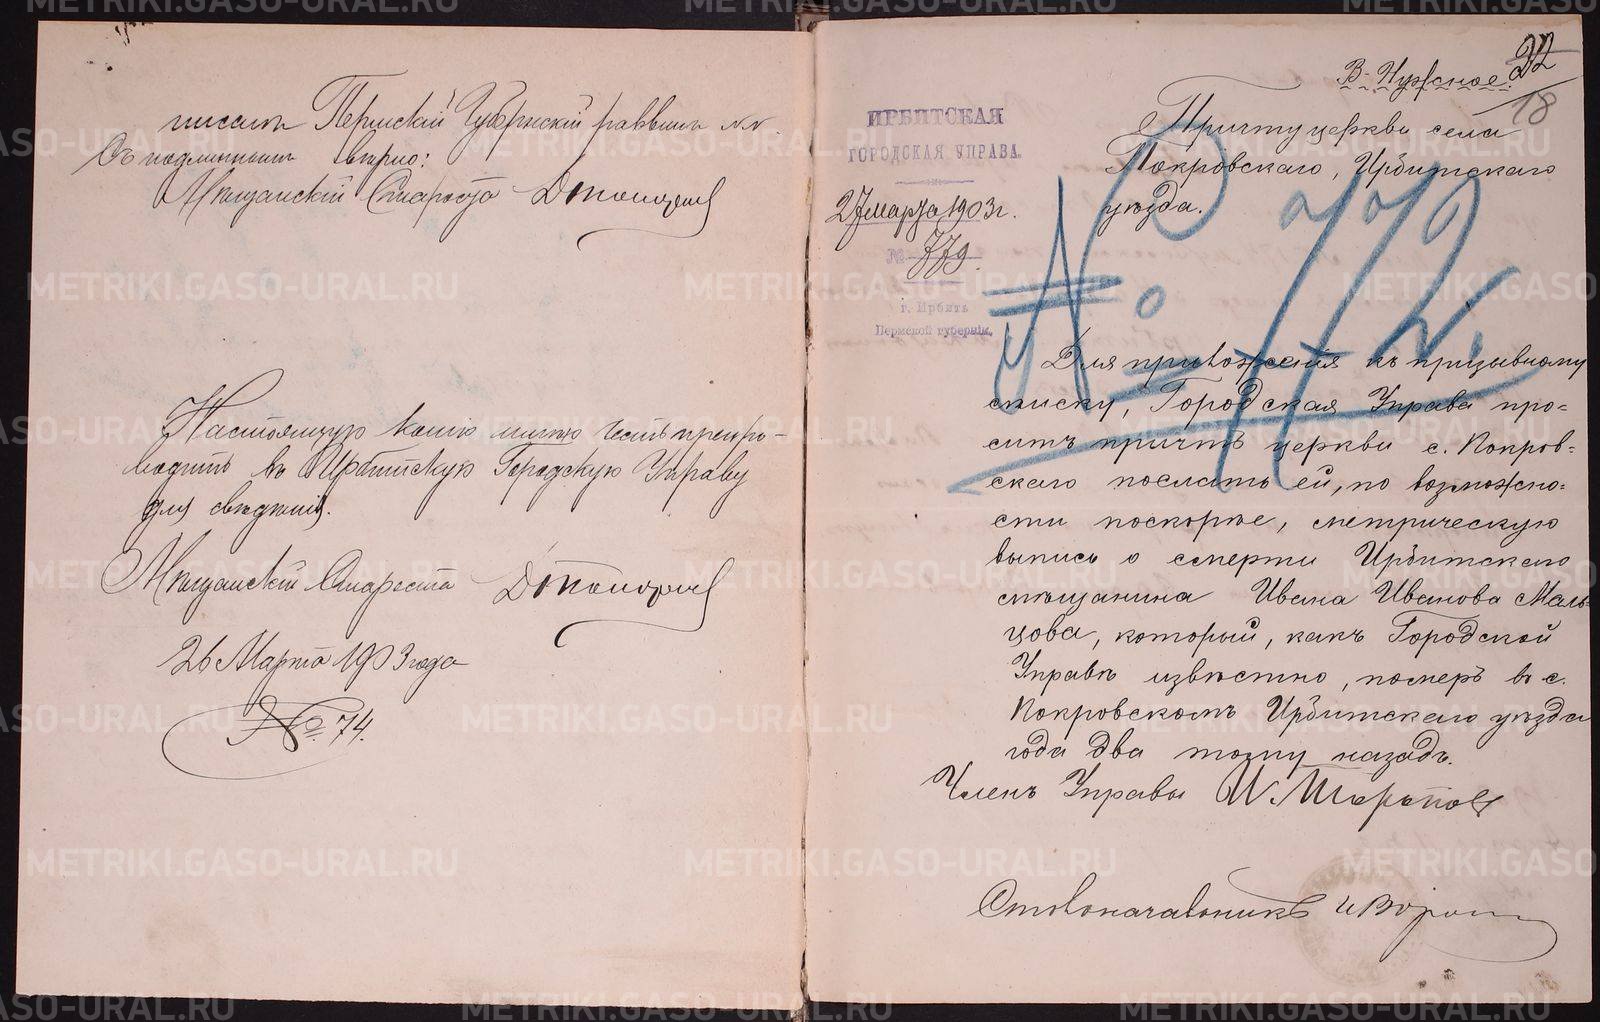 писалъ Пермскій Губернскій раввинъ
Съ подлиннымъ вѣрно:
Мѣщанскій Староста
Настоящую копію имѣю честь препро-
водить въ Ирбитскую Городскую Управу
для свѣдѣнія.
Мѣщанскій Староста
26 Марта 1903 года
№ 74.
В. Нужное.
32
18
ИРБИТСКАЯ
ГОРОДСКАЯ УПРАВА.
27 марта 1903 г.
№ 779.
г. Ирбитъ
Пермской губерніи.
Причту церкви села
Покровскаго, Ирбитскаго
уѣзда.
Для приложенія къ призывному
списку, Городская Управа про-
ситъ причтъ церкви с. Покров-
скаго послать ей, по возможно-
сти поскорѣе, метрическую
выпись о смерти Ирбитскаго
мѣщанина Ивана Иванова Маль-
цова, который, какъ Городской
Управѣ извѣстно, померъ въ с.
Покровскомъ Ирбитскаго уѣзда
года два тому назадъ.
Членъ Управы И.
Столоначальникъ
METRIKI.GASO-URAL.RU